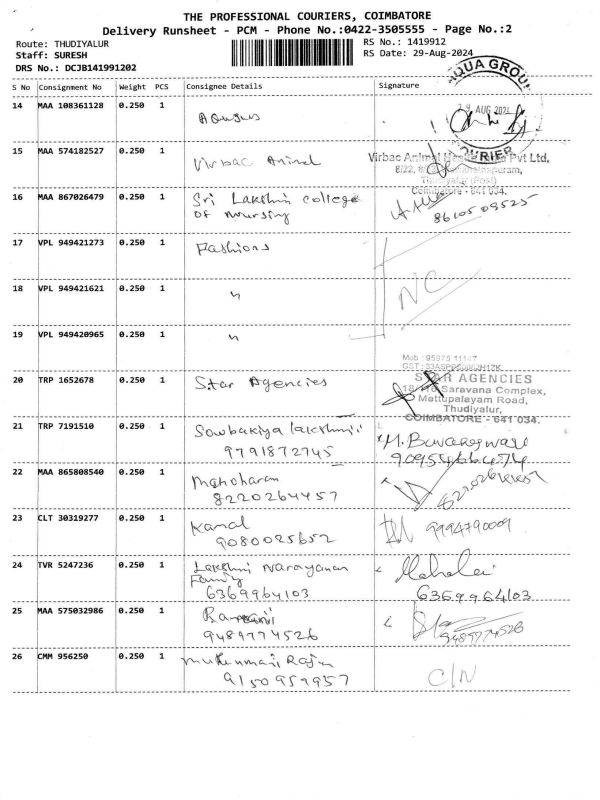 THE PROFESSIONAL COURIERS, COIMBATORE
Delivery Runsheet - PCM - Phone No.:0422-3505555 - Page No.:2
Route: THUDIYALUR
RS No.: 1419912
Staff: SURESH
RS Date: 29-Aug-2024
DRS No.: DCJB141991202
S No Consignment No Weight PCS Consignee Details Signature
AQUA GROU
AUG 202
COURIER
14 MAA 108361128 0.250 1
15 MAA 574182527 0.250 1 Virbac Animal
Virbac Animal Health India Pvt Ltd,
Thudiyalur (Post)
Coimbatore - 641 034.
16 MAA 867026479 0.250 1 Sri Lakshmi College
of nursing
8610509525
17 VPL 949421273 0.250 1 Fashions
18 VPL 949421621 0.250 1 " NC
19 VPL 949420965 0.250 1 "
Mob : 95975 11147
20 TRP 1652678 0.250 1 Star Agencies
STAR AGENCIES
Saravana Complex,
Mettupalayam Road,
Thudiyalur,
COIMBATORE - 641 034.
21 TRP 7191510 0.250 1 Sowbakiya lakshmi
9791872745
22 MAA 865808540 0.250 1 Manoharan
8220264457
23 CLT 30319277 0.250 1 Kamal
9080025652
9994790009
24 TVR 5247236 0.250 1 Lakshmi Narayanan
Family
6369964103
6369964103
25 MAA 575032986 0.250 1
9489774526
9489774526
26 CMM 956250 0.250 1
9150959957
C/N